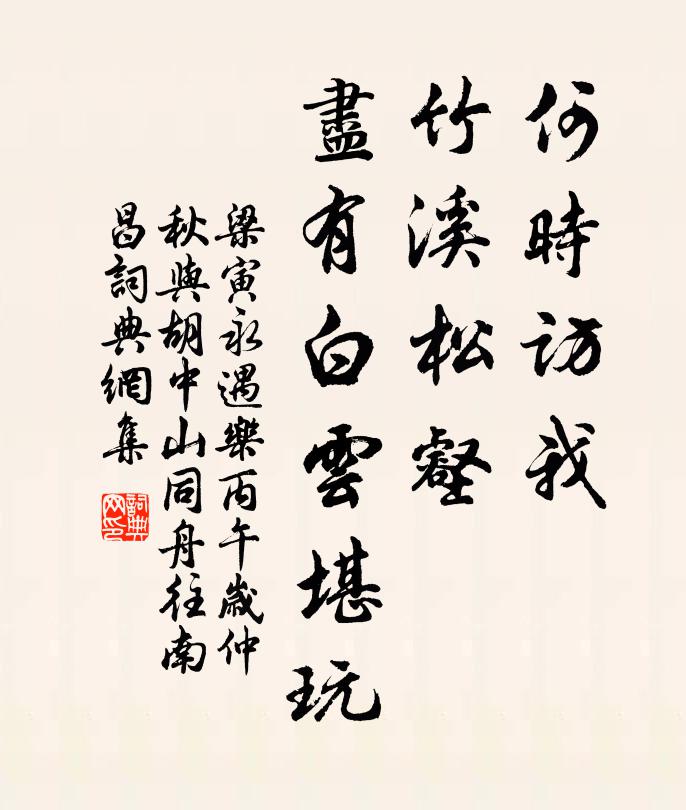 何時訪我
竹溪松壑
盡有白雲堪玩
梁寅永遇樂丙午歲仲
秋與胡中山同舟往南
昌詞典網集
詞典
网印